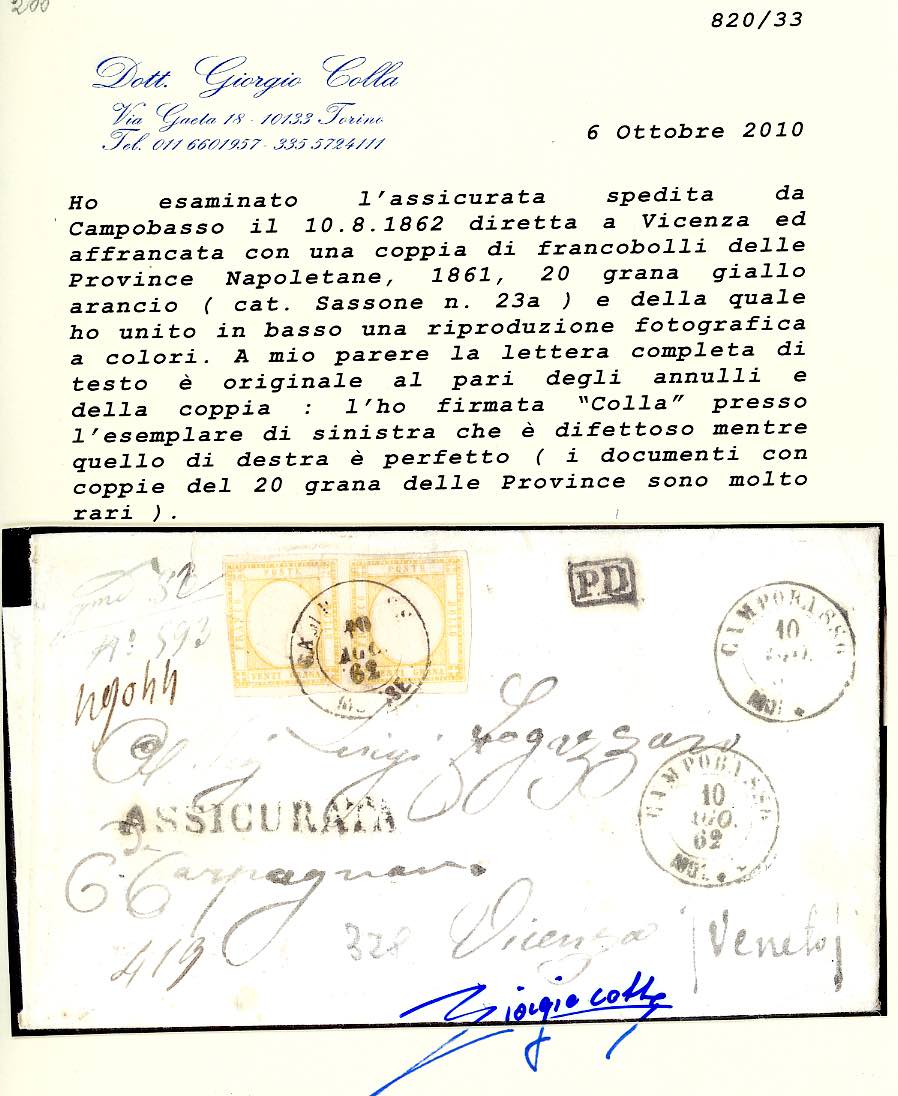 200
820/33
Dott. Giorgio Colla
Via Gaeta 18 - 10133 Torino
Tel. 011 6601957 - 335 5724111
6 Ottobre 2010
Ho esaminato l'assicurata spedita da
Campobasso il 10.8.1862 diretta a Vicenza ed
affrancata con una coppia di francobolli delle
Province Napoletane, 1861, 20 grana giallo
arancio ( cat. Sassone n. 23a ) e della quale
ho unito in basso una riproduzione fotografica
a colori. A mio parere la lettera completa di
testo è originale al pari degli annulli e
della coppia : l'ho firmata "Colla" presso
l'esemplare di sinistra che è difettoso mentre
quello di destra è perfetto ( i documenti con
coppie del 20 grana delle Province sono molto
rari ).
POSTE
VENTI GRANA
10
AGO.
62
PD
CAMPOBASSO
10
AGO.
MOL.
Luigi
CAMPOBASSO
10
AGO.
62
MOL.
ASSICURATA
419
328
Vicenza
Veneto
Giorgio Colla